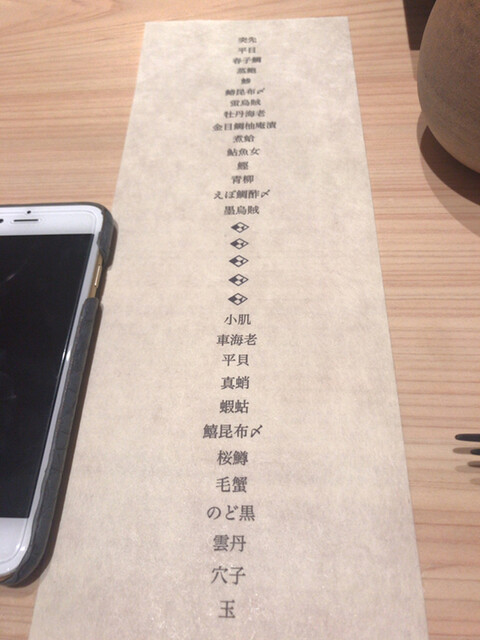 突先
平目
春子鯛
蒸鮑
鯵
鰆昆布〆
蛍烏賊
牡丹海老
金目鯛柚庵漬
煮蛤
鮎魚女
鰹
青柳
えぼ鯛酢〆
墨烏賊
小肌
車海老
平貝
真蛸
蝦蛄
鱚昆布〆
桜鱒
毛蟹
のど黒
雲丹
穴子
玉